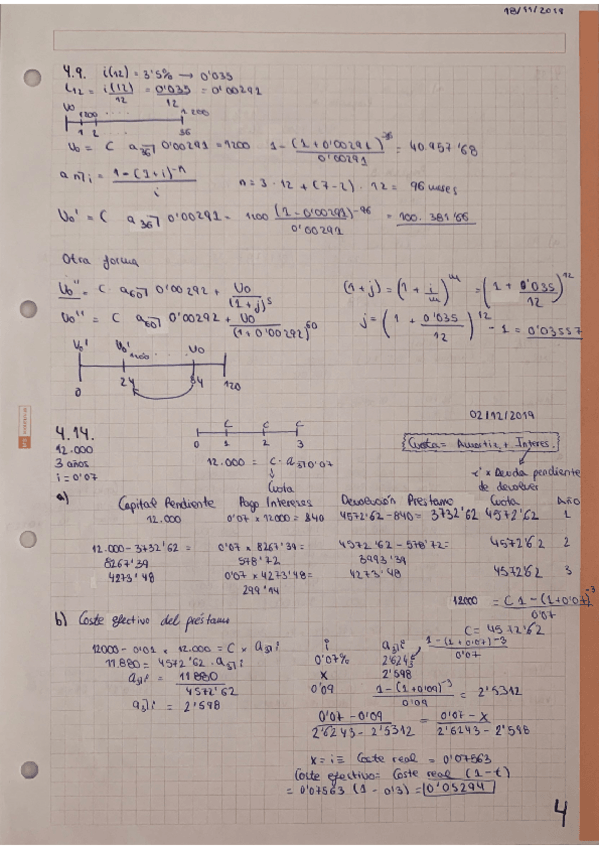 18/11/2019
4.9. i(12) = 3'5% → 0'035
i12 = i(12)/12 = 0'035/12 = 0'00291
U0 1200 ..... 1200
1 2 36
U0 = C a36⌉ 0'00291 = 1200 1-(1+0'00291)^-36 / 0'00291 = 40.957'68
an⌉i = 1-(1+i)^-n / i n = 3·12 + (7-2)·12 = 96 meses
U0' = C a36⌉ 0'00291 = 1100 (1-0'00291)^-96 / 0'00291 = 100.381'66
Otra forma
U0'' = C· a60⌉ 0'00292 + U0/(1+j)^5 (1+j) = (1 + i/m)^m = (1 + 0'035/12)^12
U0'' = C a60⌉ 0'00292 + U0/(1+0'00292)^60 j = (1 + 0'035/12)^12 - 1 = 0'03557
U0' U0' 1100 ... U0
0 24 84 120
02/12/2019
4.14. C C C
0 1 2 3
Cuota = Amortiz. + Interes.
12.000
3 años
i = 0'07
12.000 = C· a3⌉0'07
Cuota
i · Deuda pendiente
de devolver
a)
Capital Pendiente Pago Intereses Devolución Préstamo Cuota Año
12.000 0'07 x 12000 = 840 4572'62-840= 3732'62 4572'62 1
12.000-3732'62 = 0'07 x 8267'39= 4572'62-578'72= 4572'62 2
8267'39 578'72 3993'39
4273'48 0'07 x 4273'48= 4273'48 4572'62 3
299'14
12000 = C 1-(1+0'07)^-3 / 0'07
C= 4572'62
b) Coste efectivo del préstamo
12000 - 0'01 x 12.000 = C x a3⌉i
11.880 = 4572'62 · a3⌉i
a3⌉i = 11880/4572'62
a3⌉i = 2'598
i a3⌉i
0'07% 2'6243 1-(1+0'07)^-3 / 0'07
x 2'598
0'09 1-(1+0'09)^-3 / 0'09 = 2'5312
0'07-0'09 / 2'6243-2'5312 = 0'07-x / 2'6243-2'598
x = i = Coste real = 0'07563
Coste efectivo= Coste real (1-t)
= 0'07563 (1-0'3) = 0'05294
4